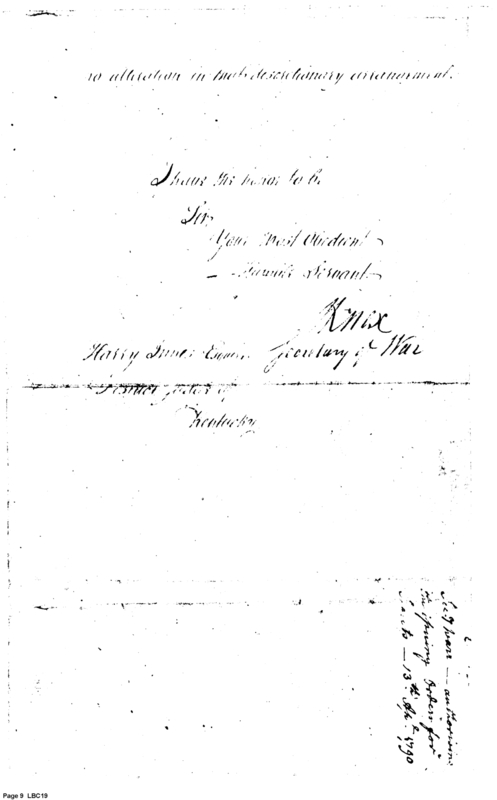 no alteration in that discretionary arrangement.
I have the honor to be
Sir,
Your Most Obedient
Humble Servant
Knox
Harry Innes Esquire Secretary of War
District Judge of
Kentucky
Secy War — authorising
the issuing Orders for
Scouts — 13th Apl. 1790
Page 9 LBC19